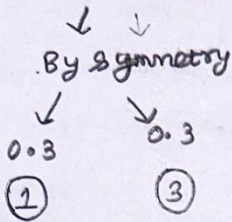 By Symmetry
0.3 0.3
1 3